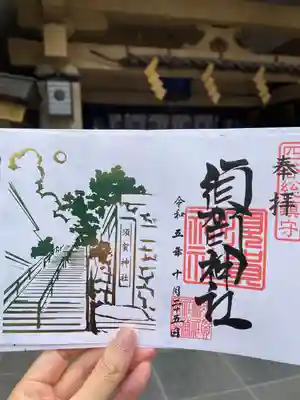 奉拝
須賀神社
令和五年十月二十五日
須賀神社